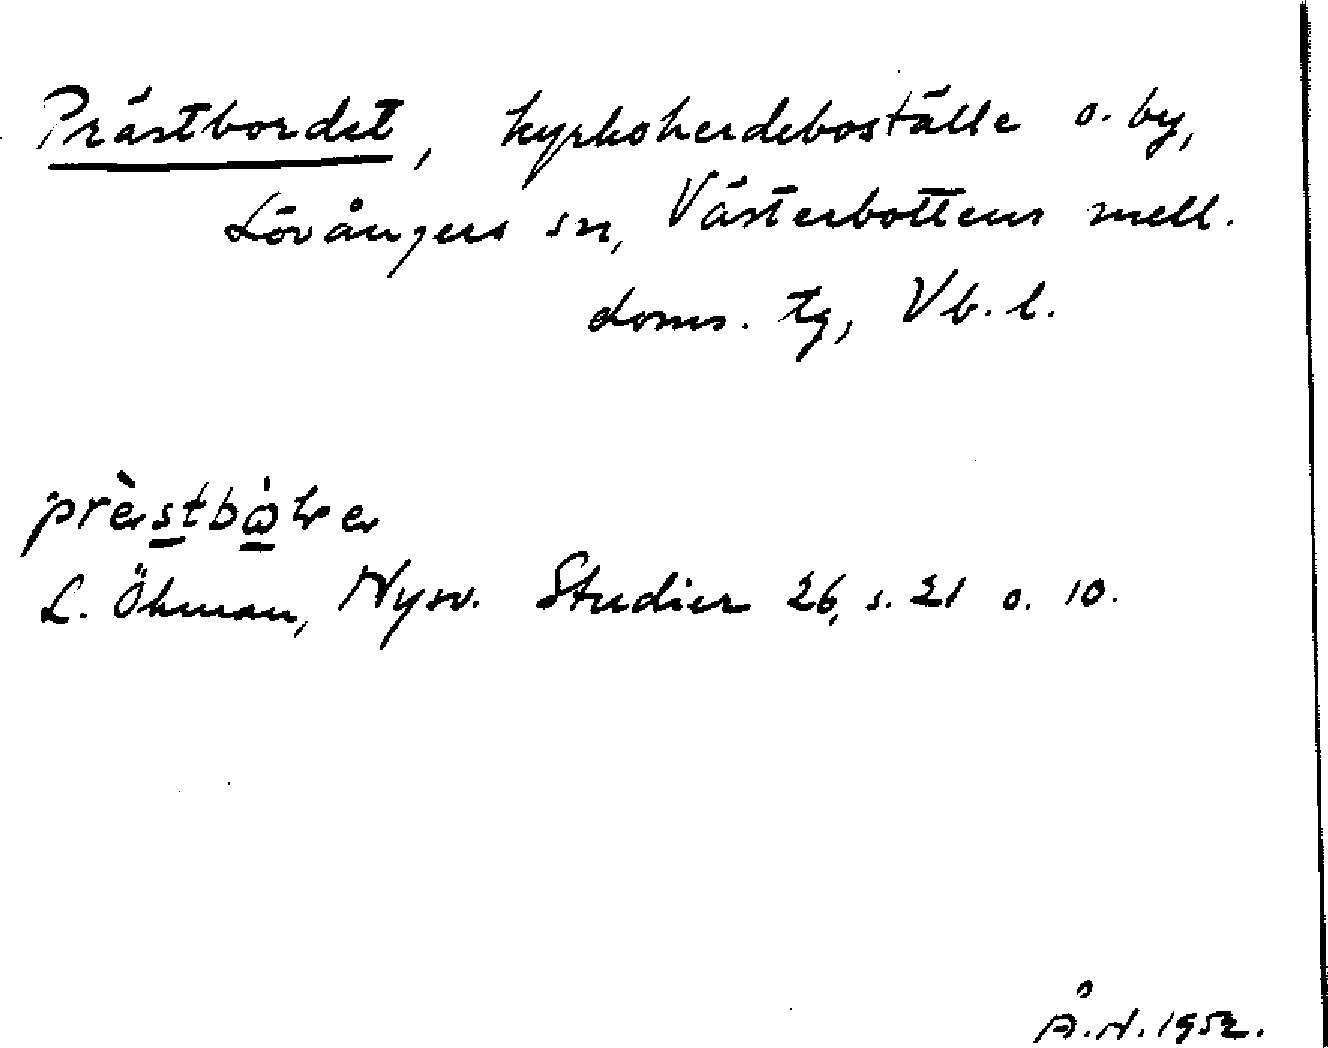 Prästbordet, kyrkoherdeboställe o. by,
Lövångers sn, Västerbottens mell.
doms. tg, Vb. l.
L. Öhman, Nysv. Studier 26, s. 21 o. 10.
Å.N. 1952.